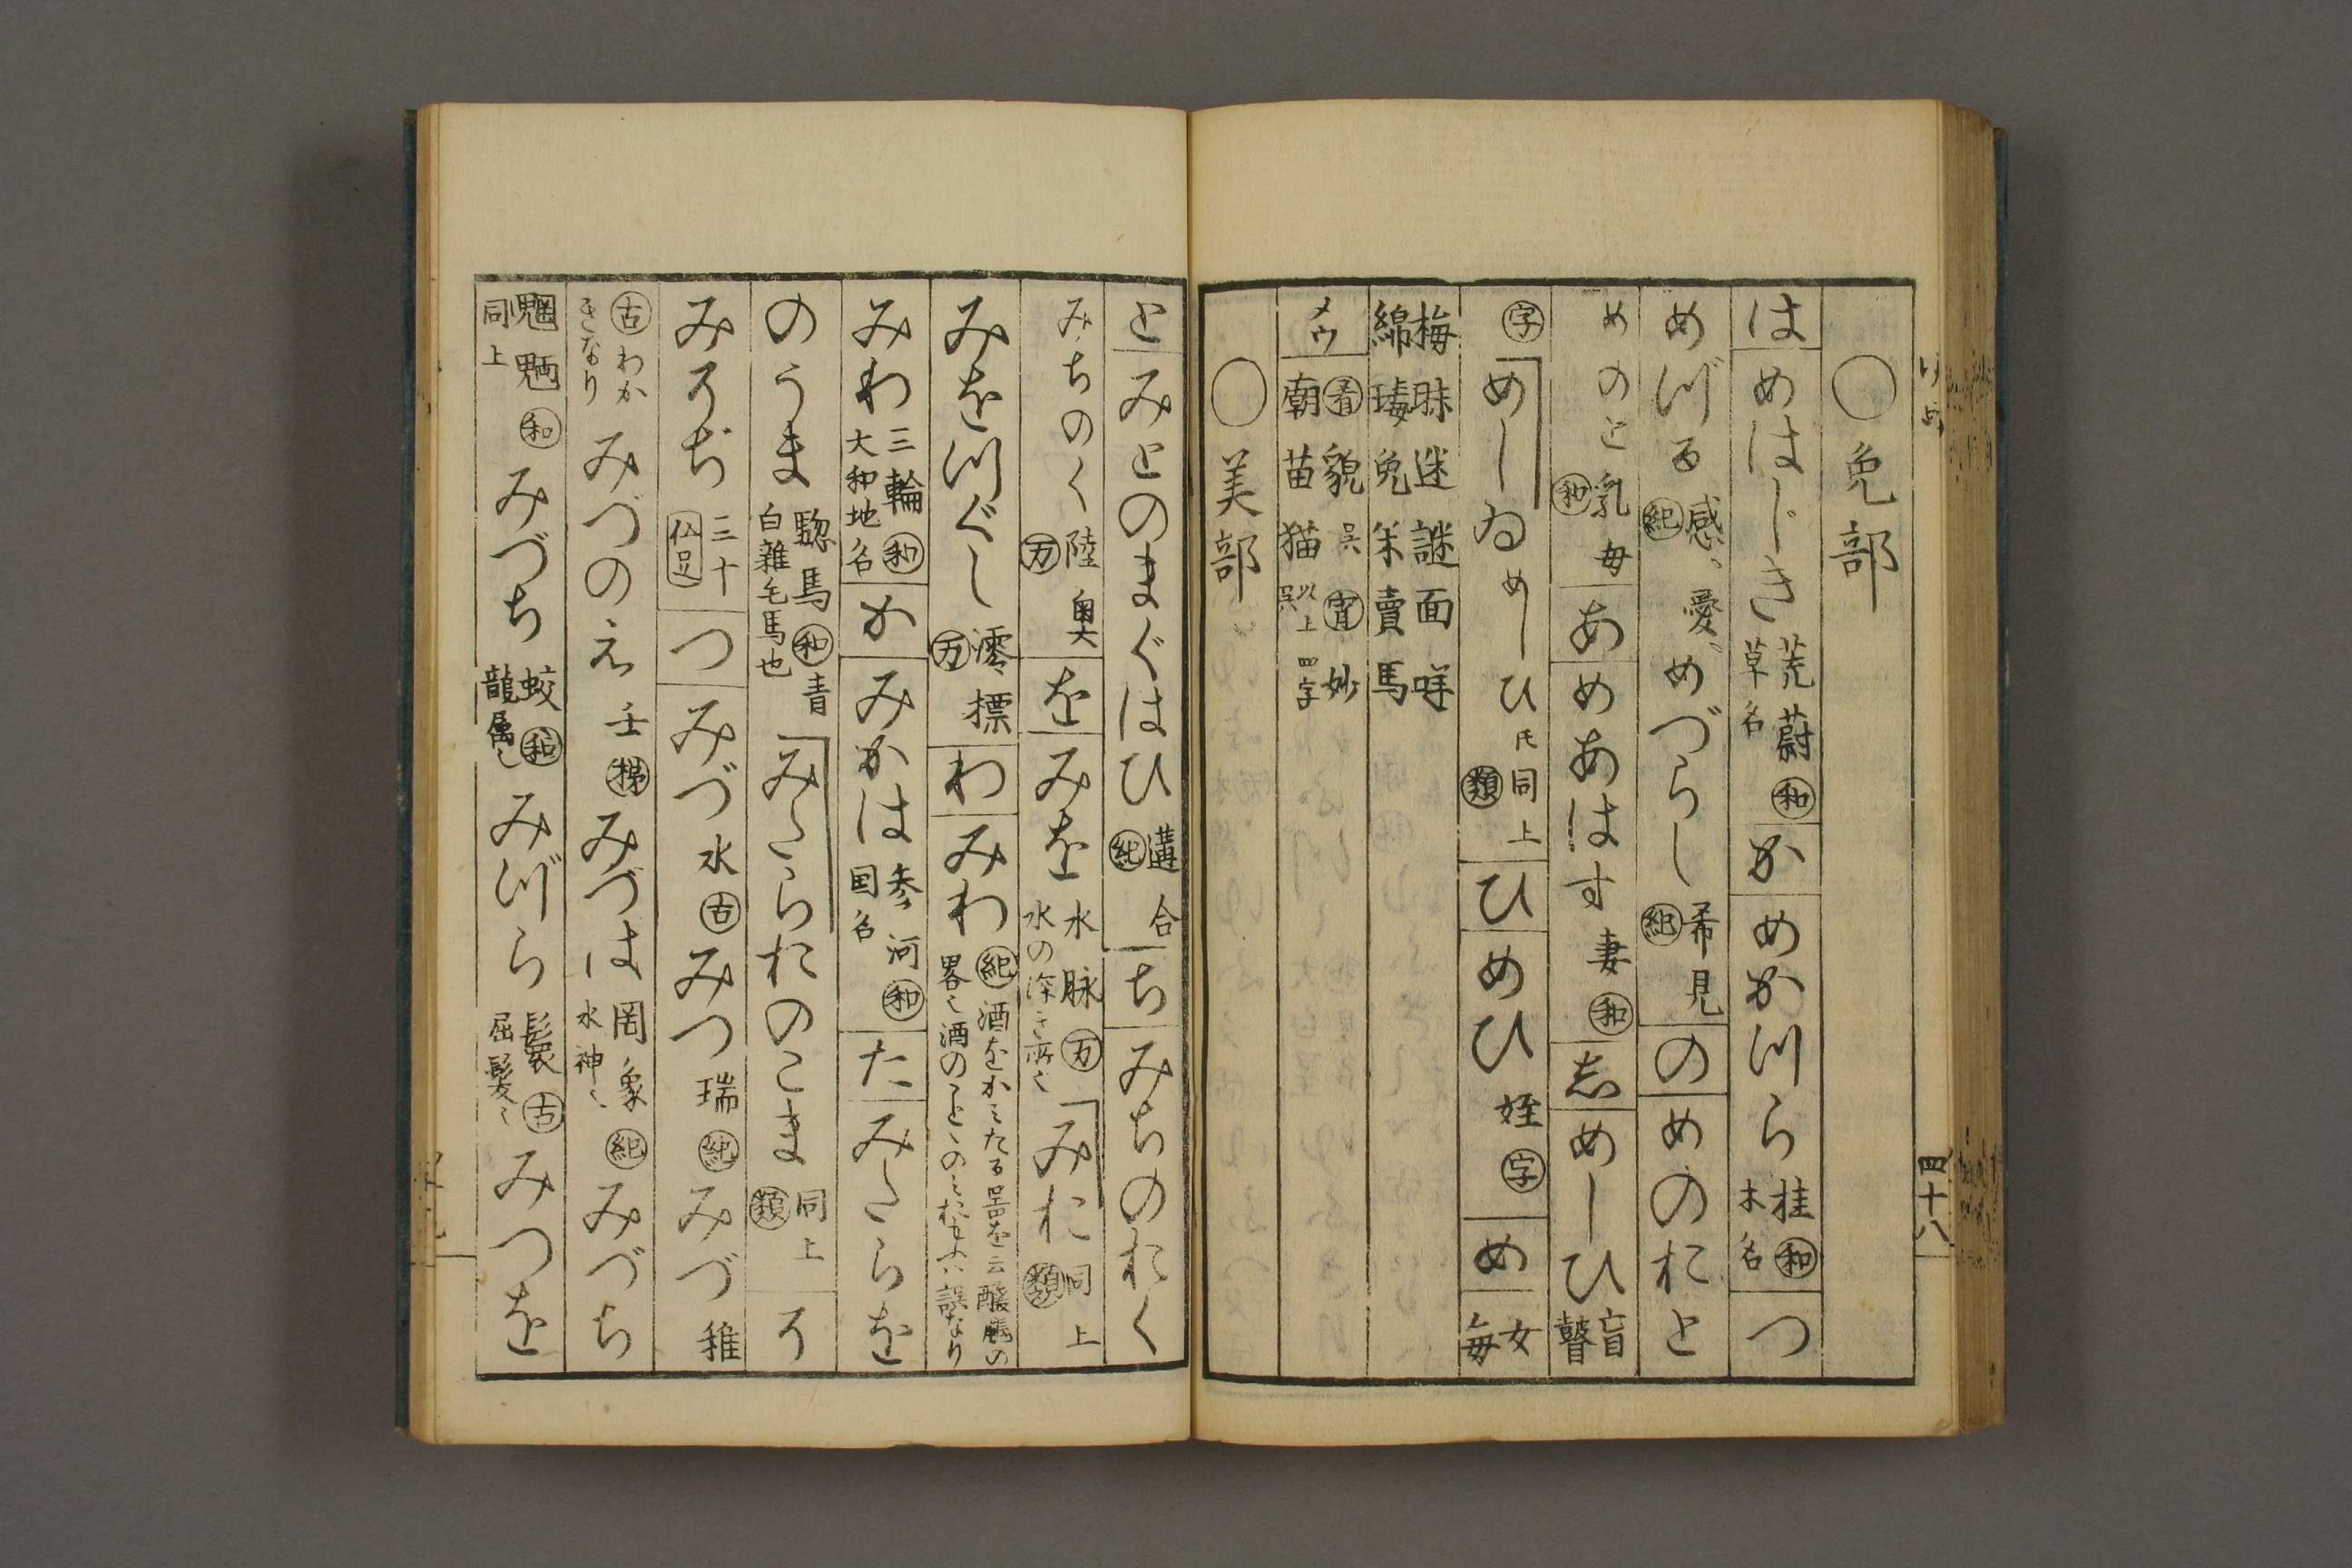 ○免部
は めはじき 茺蔚 和 草名 か めかづら 桂 和 木名 つ
めづる 感、愛、 紀 めづらし 希見 紀 の めのおと
めのと 乳母 和 あ めあはす 妻 和 志 めしひ 盲瞽
字 めしゐ めしひ 同上 類 ひ めひ 姪 字 め 女毎
梅眛迷謎面咩
綿 免 米賣馬
メウ 貌 呉 妙
廟苗猫 以上四字呉
○美部
四十八
と みとのまぐはひ 遘合 紀 ち みちのおく
みちのく 陸奥 万 を みを 水脉 万 水の深き所 みお 同上 類
みをづくし 澪標 万 わ みわ 紀 酒をかみたる
みわ 三輪 和 大和地名 か みかは 参河 和 国名 た みたらを
のうま 驄馬 和 青白雜毛馬也 みたらおのこま 同上 類 そ
みそぢ 三十 仏足 つ みづ 水 古 みつ 瑞 紀 みづ 稚
古 わかきなり みづのえ 壬 みづは 罔象 紀 水神 みづち
魍魎 和 同上 みづち 蛟 和 龍属 みづら 鬟 古 屈髪 みつを